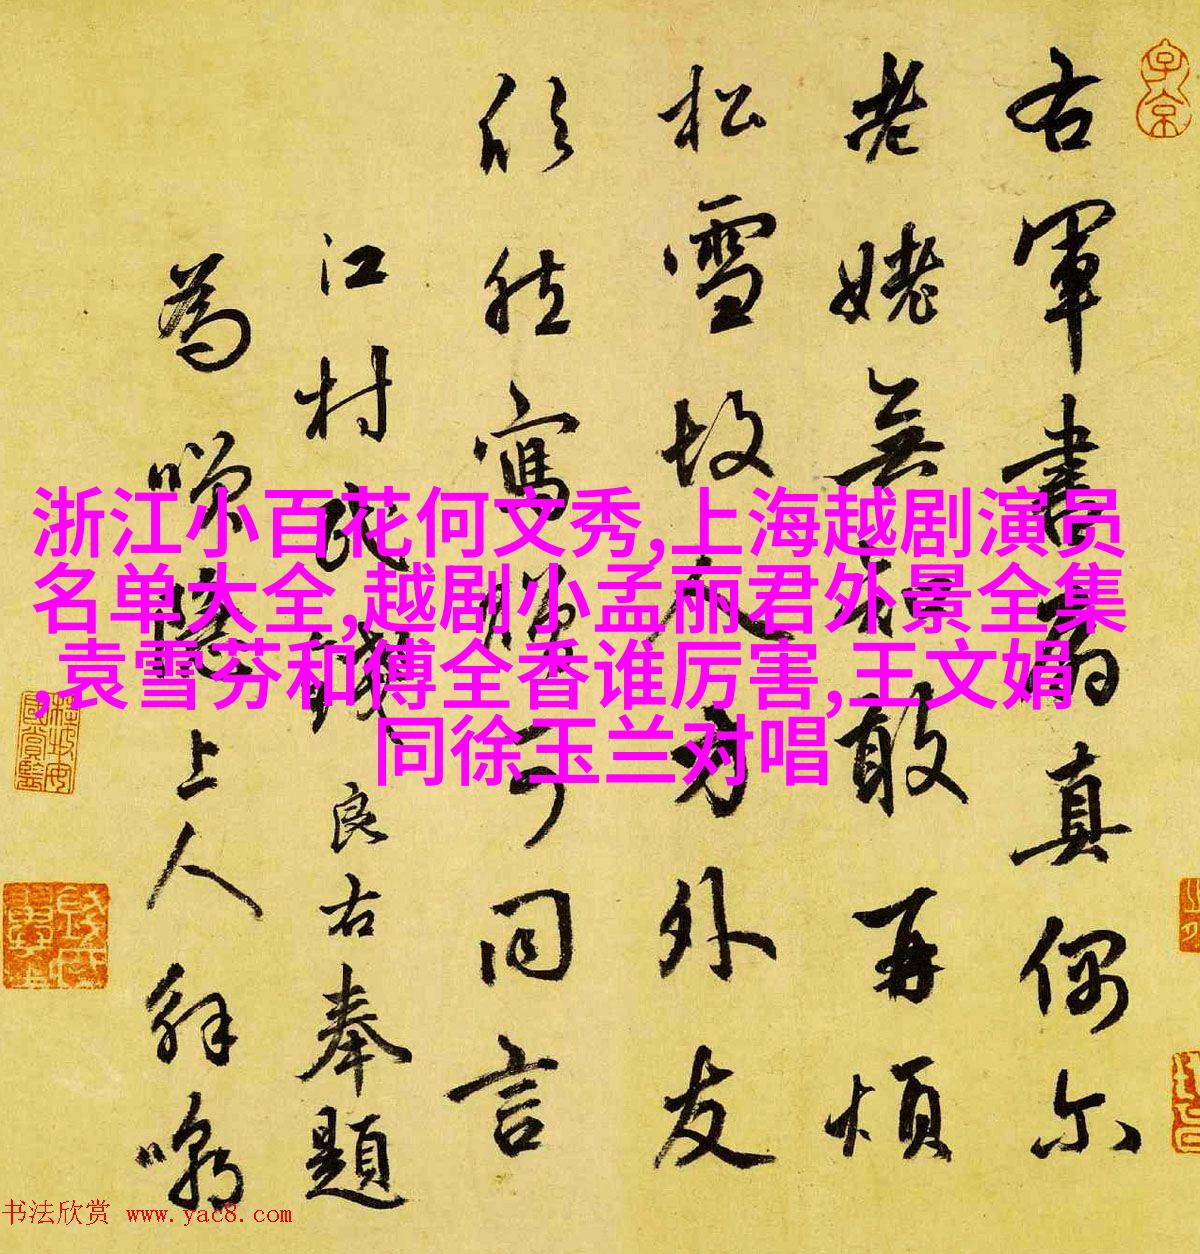 子京
右軍書扇真偶尔
老姥無知敢再煩
松雪故人方外友
欣然寫贈可同言
江村民錢良右奉題
為隱上人解嘲
浙江小百花何文秀,上海越剧演员
名单大全,越剧小孟丽君外景全集
,袁雪芬和傅全香谁厉害,王文娟
同徐玉兰对唱
书法欣赏 www.yac8.com